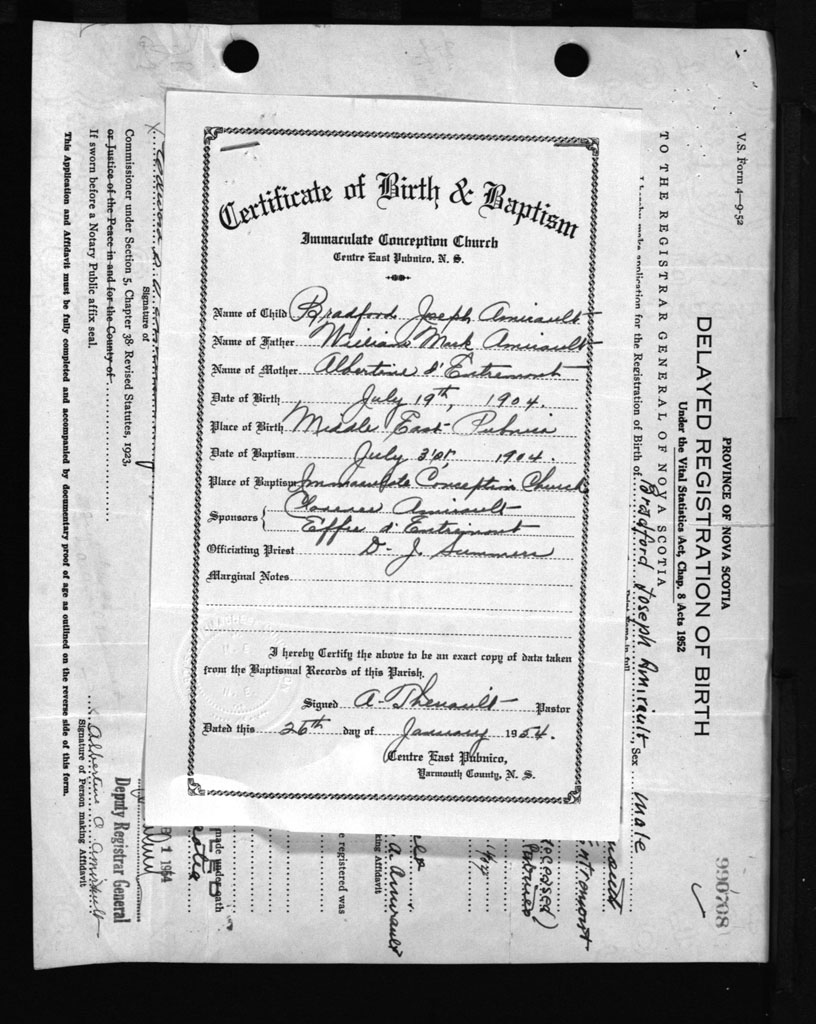 Certificate of Birth & Baptism
Immaculate Conception Church
Centre East Pubnico, N. S.
Name of Child Bradford Joseph Amirault
Name of Father William Mark Amirault
Name of Mother Albertine d'Entremont
Date of Birth July 19th, 1904.
Place of Birth Middle East Pubnico
Date of Baptism July 31st, 1904.
Place of Baptism Immaculate Conception Church
Sponsors { Clarence Amirault
Effie d'Entremont
Officiating Priest D. J. Summers
Marginal Notes
I hereby Certify the above to be an exact copy of data taken
from the Baptismal Records of this Parish.
Signed A. Theriault Pastor
Dated this 26th day of January 1954.
Centre East Pubnico,
Yarmouth County, N. S.
V.S. Form 4—9-52
PROVINCE OF NOVA SCOTIA
DELAYED REGISTRATION OF BIRTH
Under the Vital Statistics Act, Chap. 8 Acts 1952
990708
TO THE REGISTRAR GENERAL OF NOVA SCOTIA
I hereby make application for the Registration of Birth of Bradford Joseph Amirault, Sex male
(deceased)
Pubnico
e registered was
A. Amirault
king Affidavit
made under oath
1 1954
Deputy Registrar General
X
Signature of
Commissioner under Section 5, Chapter 38 Revised Statutes, 1923,
or Justice of the Peace in and for the County of
If sworn before a Notary Public affix seal.
X Albertine A. Amirault
Signature of Person making Affidavit
This Application and Affidavit must be fully completed and accompanied by documentary proof of age as outlined on the reverse side of this form.